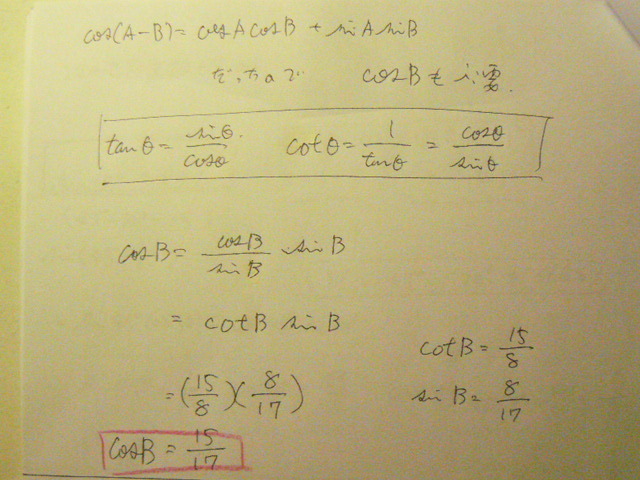 cos(A-B)= cosAcosB + sinAsinB
だったので cosBも必要.
tanθ = sinθ/cosθ cotθ = 1/tanθ = cosθ/sinθ
cosB = cosB/sinB · sinB
= cotB sinB
cotB = 15/8
= (15/8)(8/17)
sinB = 8/17
cosB = 15/17